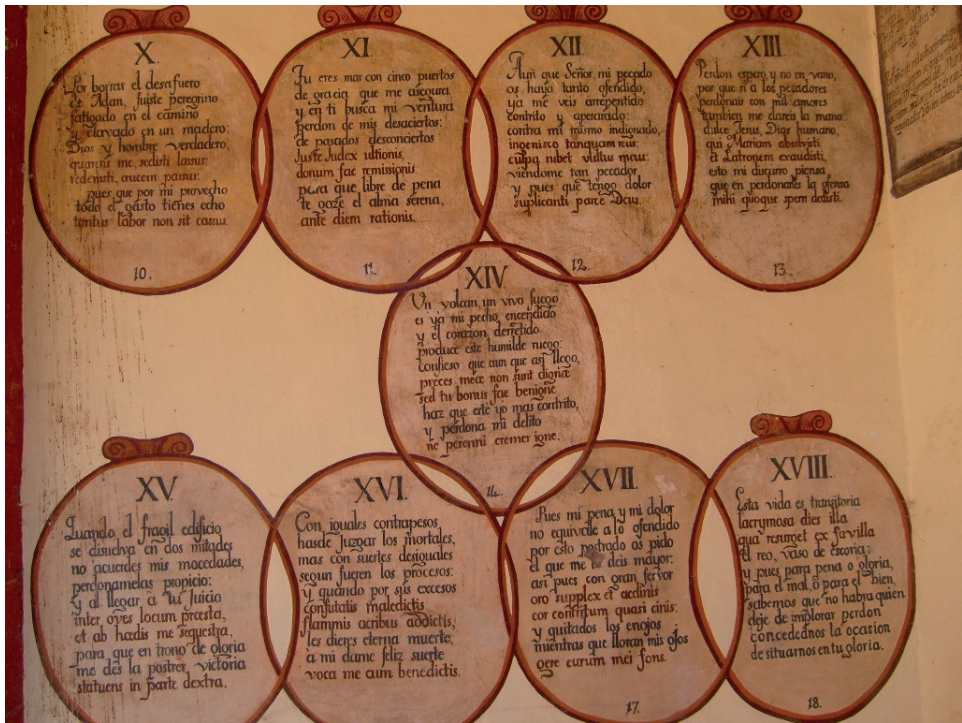 X.
Por borrar el desafuero
de Adan, fuiste peregrino
fatigado en el camino
y clavado en un madero:
Dios y hombre verdadero,
quærens me, sedisti lassus:
redemisti, crucem passus:
pues que por mi provecho
todo el gasto tienes echo
tantus labor non sit cassus.
10.
XI
Tu eres mar con cinco puertos
de gracia, que me asegura
y en ti busca mi ventura
perdon de mis desaciertos:
de pasados desconciertos
Juste Judex ultionis,
donum fac remissionis.
para que libre de pena
te goze el alma serena,
ante diem rationis.
11.
XII
Aun que Señor, mi pecado
os haya tanto ofendido,
ya me veis arrepentido
contrito y apesarado:
contra mi mismo indignado,
ingemisco tanquam reus:
culpa rubet vultus meus:
viendome tan pecador,
y pues que tengo dolor
suplicanti parce Deus.
12.
XIII.
Perdon espero, y no en vano,
por que si a los pecadores
perdonais con mil amores
tambien me dareis la mano:
dulce Jesus, Dios humano,
qui Mariam absolvisti
et Latronem exaudisti,
esto mi discurso piensa
que en perdonarles la ofensa
mihi quoque spem dedisti.
13.
XIV.
Un volcan, un vivo fuego
es ya mi pecho, encendido
y el corazon derretido
produce este humilde ruego:
confieso que aun que asi llego,
preces meæ non sunt dignæ
sed tu bonus fac benigne
haz que esté yo mas contrito,
y perdona mi delito
ne perenni cremer igne.
14.
XV.
Quando el fragil edificio
se disuelva en dos mitades
no acuerdes mis mocedades,
perdonamelas propicio:
y al llegar à tu Juicio
inter oves locum præsta,
et ab hædis me sequestra,
para que en trono de gloria
me dès la postrer victoria
statuens in parte dextra.
XVI.
Con iguales contrapesos,
hasde juzgar los mortales,
mas con suertes desiguales
segun fueren los procesos:
y quando por sus excesos
confutatis maledictis
flammis acribus addictis,
les dieres eterna muerte,
à mi dame feliz suerte
voca me cum benedictis.
XVII.
Pues mi pena, y mi dolor
no equivalle a lo ofendido
por esto postrado os pido
el que me lo deis mayor:
asi pues con gran fervor
oro supplex et aclinis
cor contritum quasi cinis:
y quitados los enojos
mientras que lloran mis ojos
gere curum mei finis.
17.
XVIII.
Esta vida es transitoria
lacrymosa dies illa
qua resurget ex favilla
el reo, vaso de escoria:
y pues para pena o gloria,
para el mal, ò para el bien,
sabemos que no habra quien
deje de implorar perdon
concedednos la ocasion
de situarnos en tu gloria.
18.